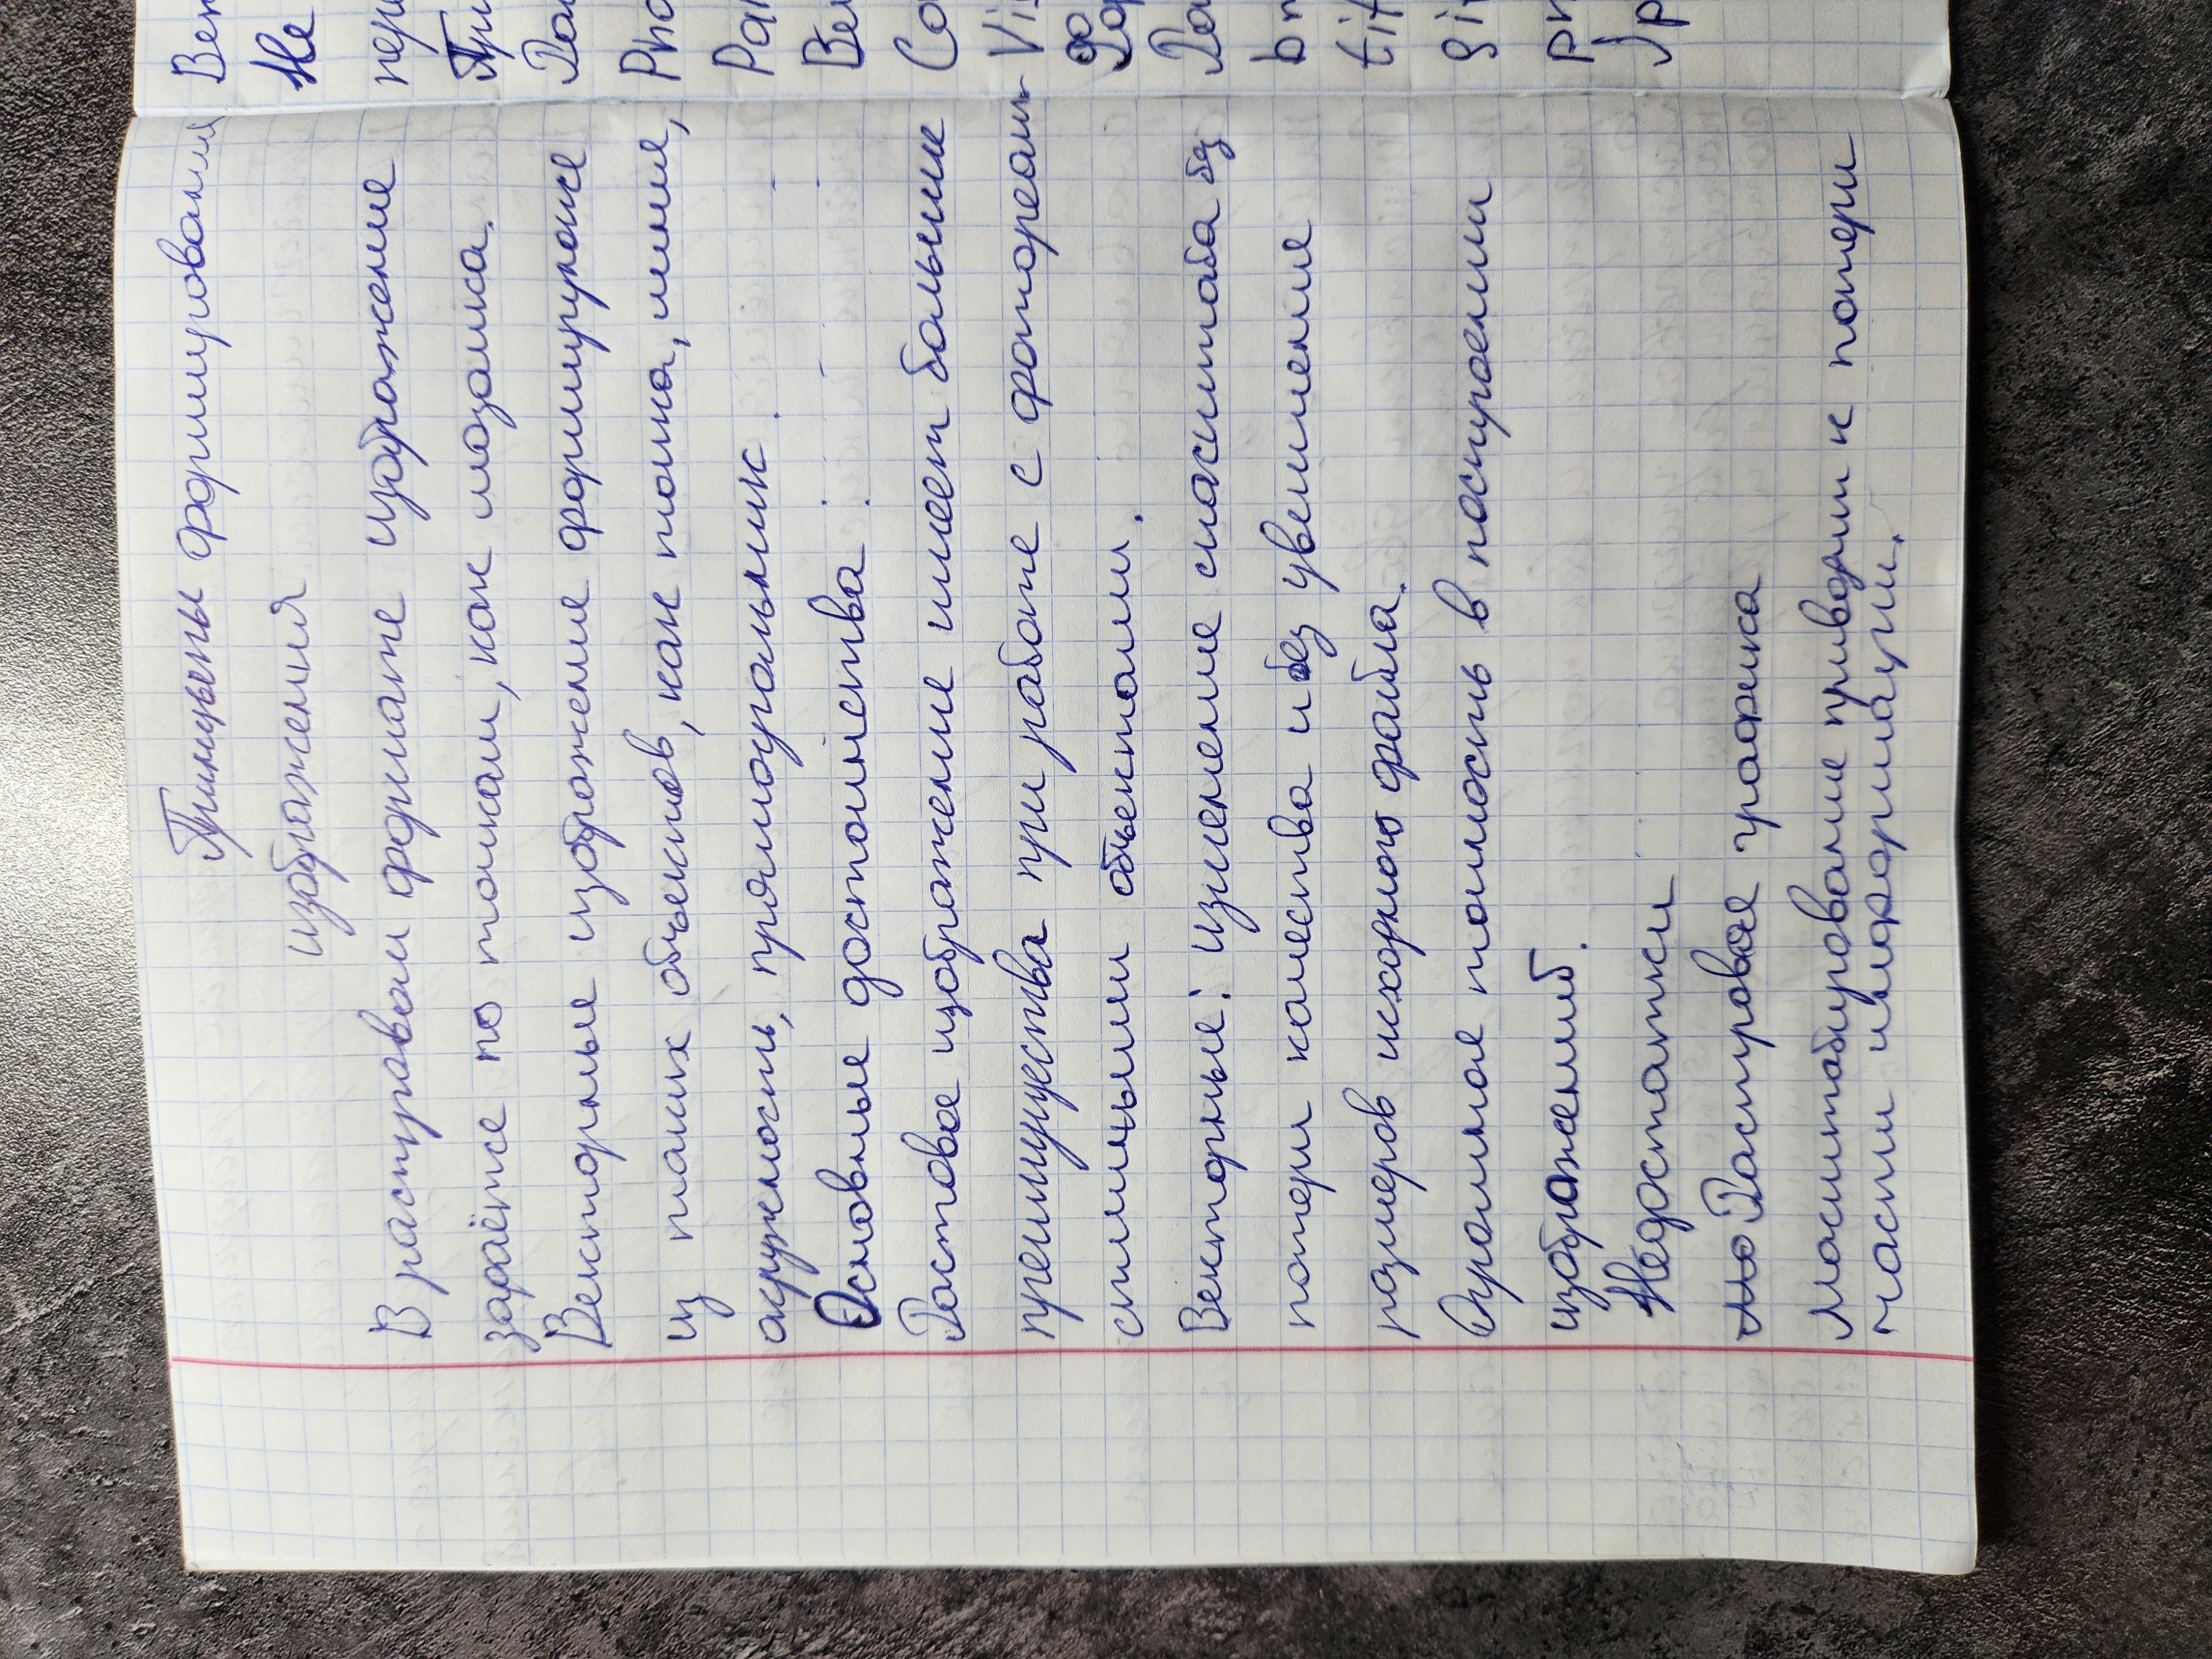 Принципы формирования
изображения
В растровом формате изображение
задаётся по точкам, как мозаика.
Векторные изображение формируюже
из таких объектов, как точка, линие,
окружность, прямоугольник
Основные достоинства:
Растовое изображение имеет большие
преимущества при работе с фотореали-
стичными объектами.
Векторные: изменение масштаба без
потери качества и без увеличение
размеров исходного файла.
Огромное точность в построении
изображений.
Недостатки
Растровое графика
Масштабирование приводит к потери
части информации.
Век
Не
пер
При
Рас
Pho
Pai
Век
Co
Vis
Фор
Рас
bm
tif
gif
pn
Гр